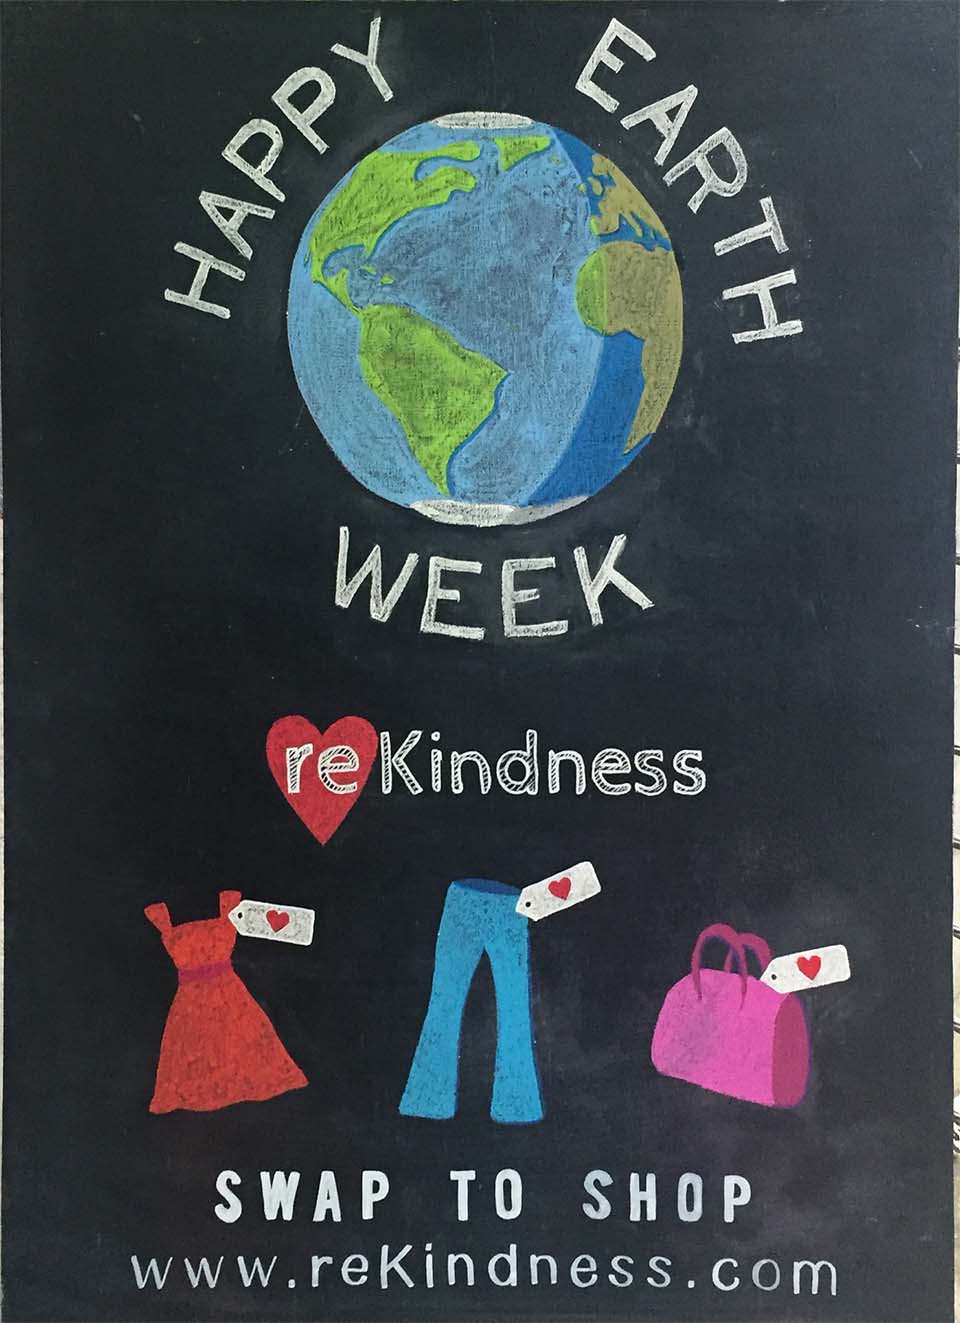 HAPPY EARTH
WEEK
reKindness
SWAP TO SHOP
www.reKindness.com